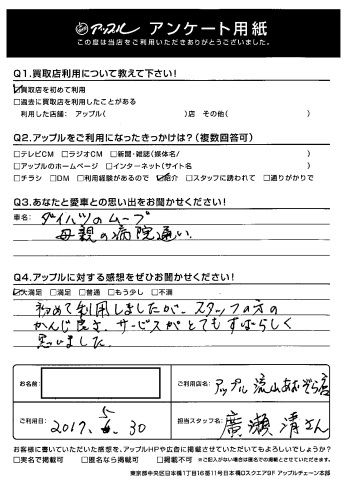 アップル アンケート用紙
この度は当店をご利用いただきありがとうございました。
Q1.買取店利用について教えて下さい！
☑買取店を初めて利用
□過去に買取店を利用したことがある
利用した店舗： アップル（ ）店 その他（ ）
Q2.アップルをご利用になったきっかけは？（複数回答可）
□テレビCM □ラジオCM □新聞・雑誌（媒体名/ ）
□アップルのホームページ □インターネット（サイト名 ）
□チラシ □DM □利用経験があるので ☑紹介 □スタッフに誘われて □通りがかりで
Q3.あなたと愛車との思い出をお聞かせください！
車名： ダイハツのムーブ
母親の病院通い
Q4.アップルに対する感想をぜひお聞かせください！
☑大満足 □満足 □普通 □もう少し □不満
初めて利用しましたが、スタッフの方の
かんじ良さ、サービスがとてもすばらしく
思いました。
お名前
ご利用店名： アップル 流山おおぞら店
ご利用日 2017. 5. 30
担当スタッフ名： 廣瀬 清さん
お客様に書いていただいた感想を、アップルHPや広告に掲載させていただいてもよろしいでしょうか？
□実名で掲載可 □匿名なら掲載可 □掲載不可 ※ご記入がない場合は匿名での掲載とさせていただきます。
東京都中央区日本橋1丁目16番11号日本橋Dスクエア9F アップルチェーン本部